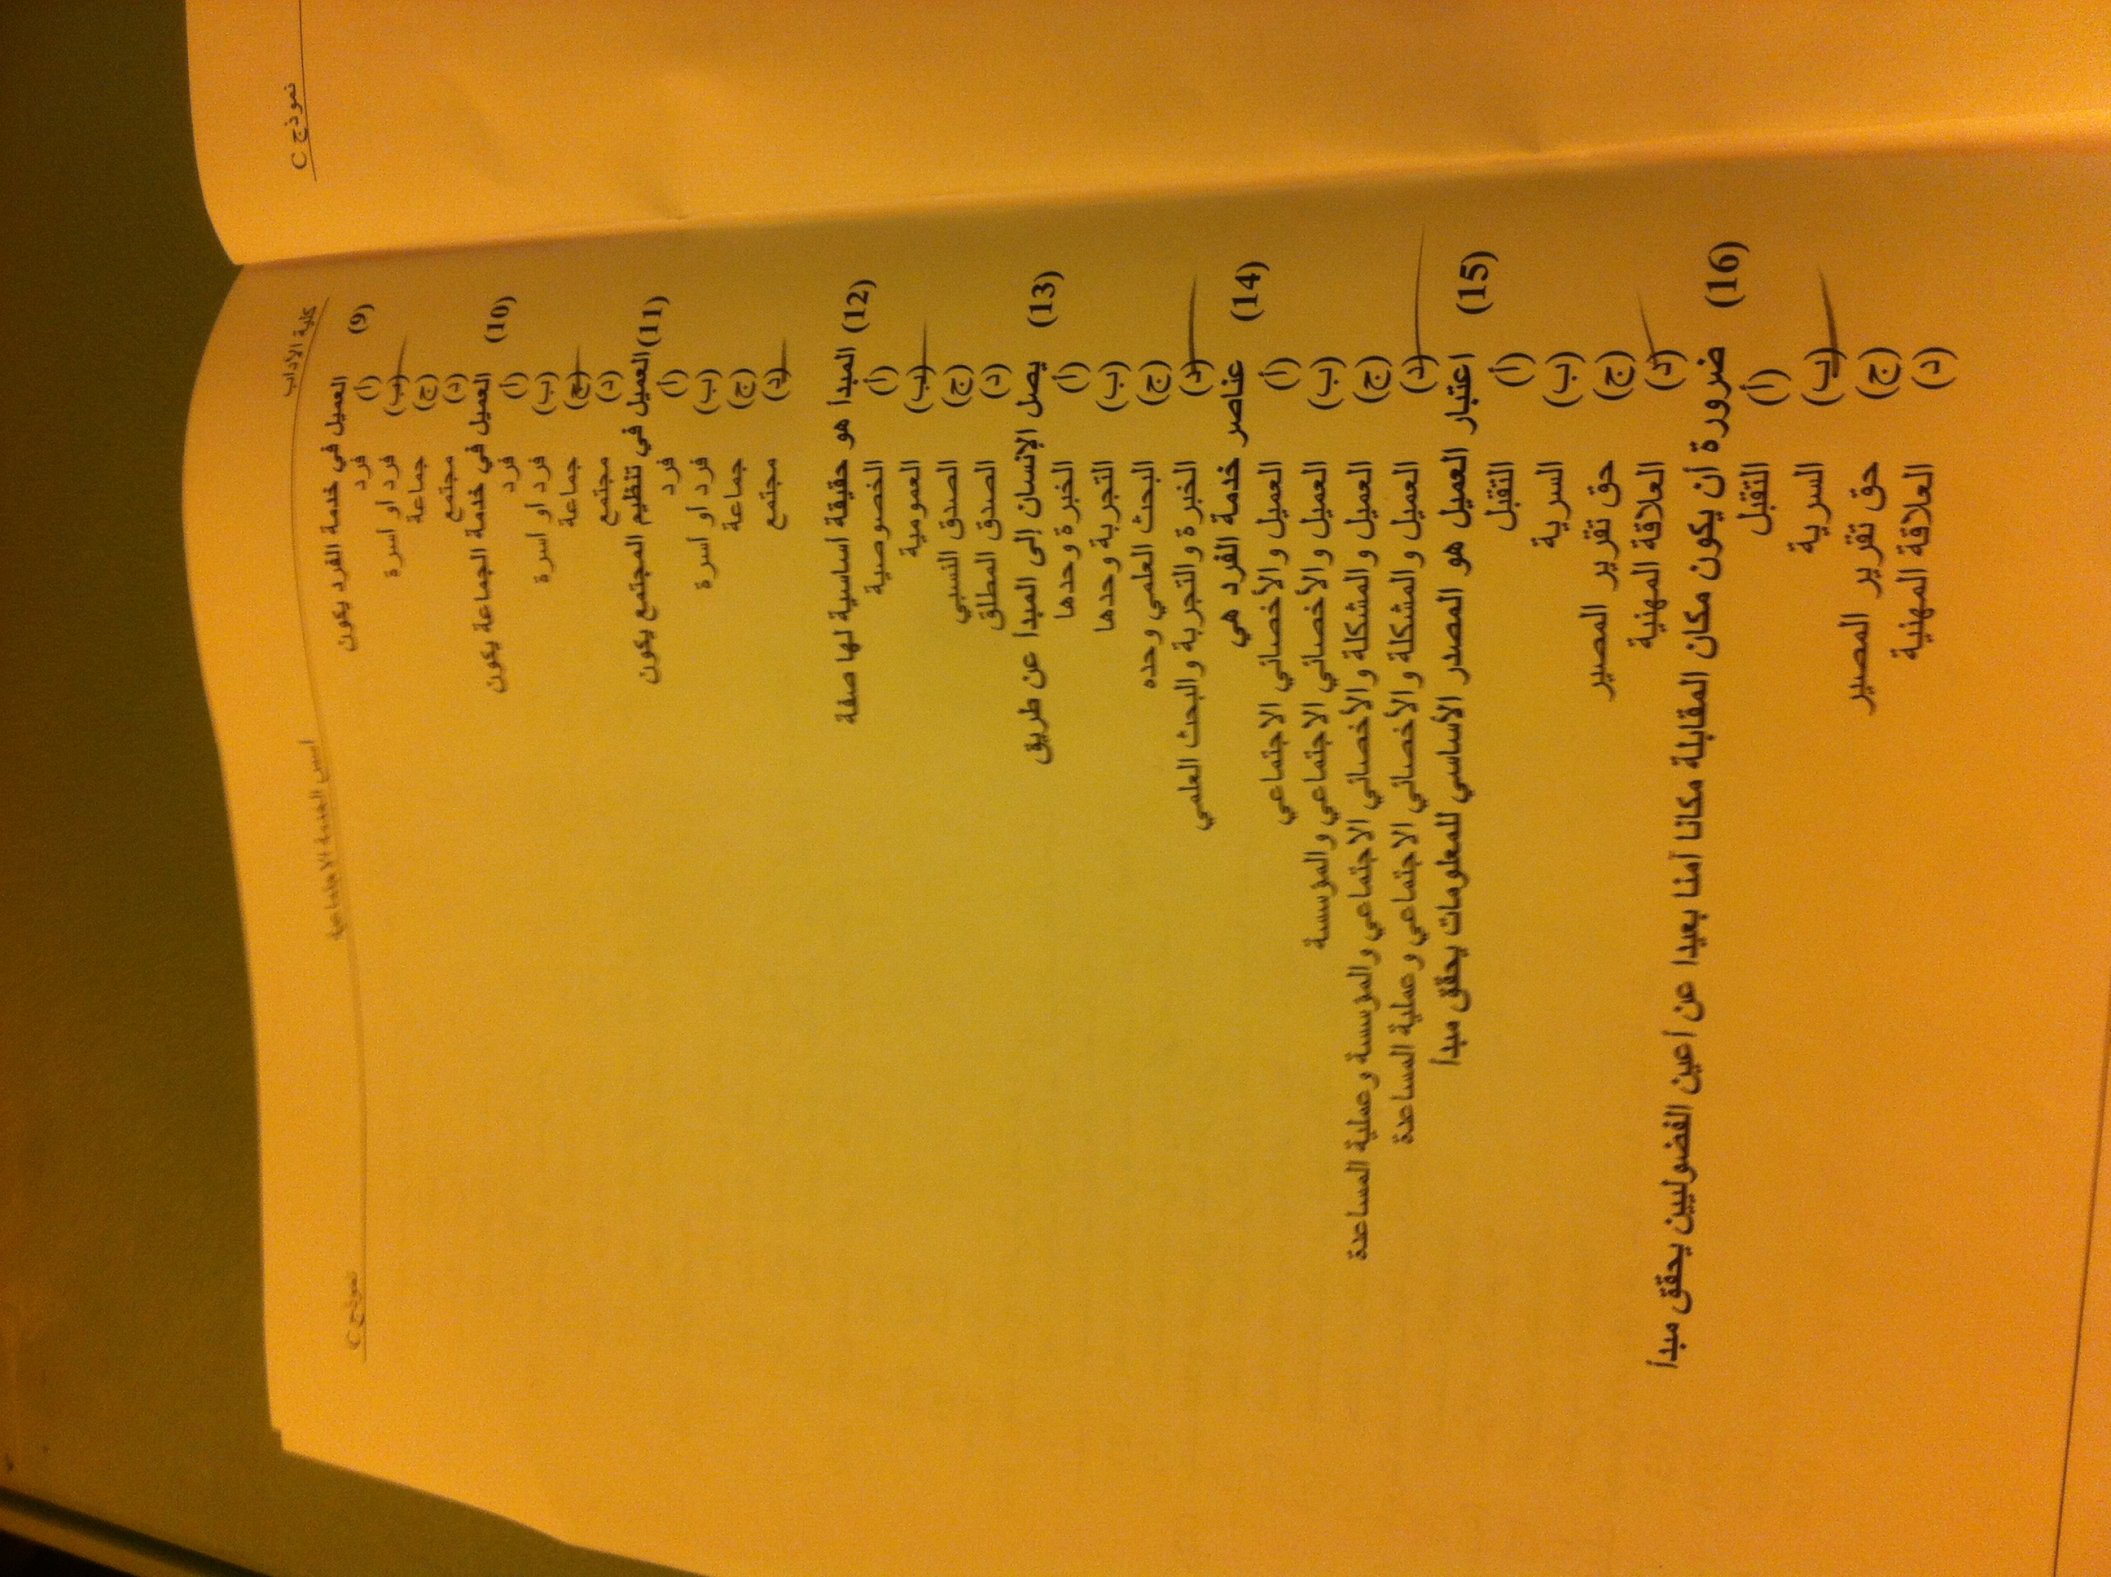 نموذج C
كلية الآداب
أسس الخدمة الاجتماعية
نموذج C
(9) العميل في خدمة الفرد يكون
(أ) فرد
(ب) فرد او اسرة
(ج) جماعة
(د) مجتمع
(10) العميل في خدمة الجماعة يكون
(أ) فرد
(ب) فرد او اسرة
(ج) جماعة
(د) مجتمع
(11) العميل في تنظيم المجتمع يكون
(أ) فرد
(ب) فرد او اسرة
(ج) جماعة
(د) مجتمع
(12) المبدأ هو حقيقة أساسية لها صفة
(أ) الخصوصية
(ب) العمومية
(ج) الصدق النسبي
(د) الصدق المطلق
(13) يصل الإنسان إلى المبدأ عن طريق
(أ) الخبرة وحدها
(ب) التجربة وحدها
(ج) البحث العلمي وحده
(د) الخبرة والتجربة والبحث العلمي
(14) عناصر خدمة الفرد هي
(أ) العميل والأخصائي الاجتماعي
(ب) العميل والأخصائي الاجتماعي والمؤسسة
(ج) العميل والمشكلة والأخصائي الاجتماعي والمؤسسة وعملية المساعدة
(د) العميل والمشكلة والأخصائي الاجتماعي وعملية المساعدة
(15) اعتبار العميل هو المصدر الأساسي للمعلومات يحقق مبدأ
(أ) التقبل
(ب) السرية
(ج) حق تقرير المصير
(د) العلاقة المهنية
(16) ضرورة أن يكون مكان المقابلة مكانا آمنا بعيدا عن أعين الفضوليين يحقق مبدأ
(أ) التقبل
(ب) السرية
(ج) حق تقرير المصير
(د) العلاقة المهنية